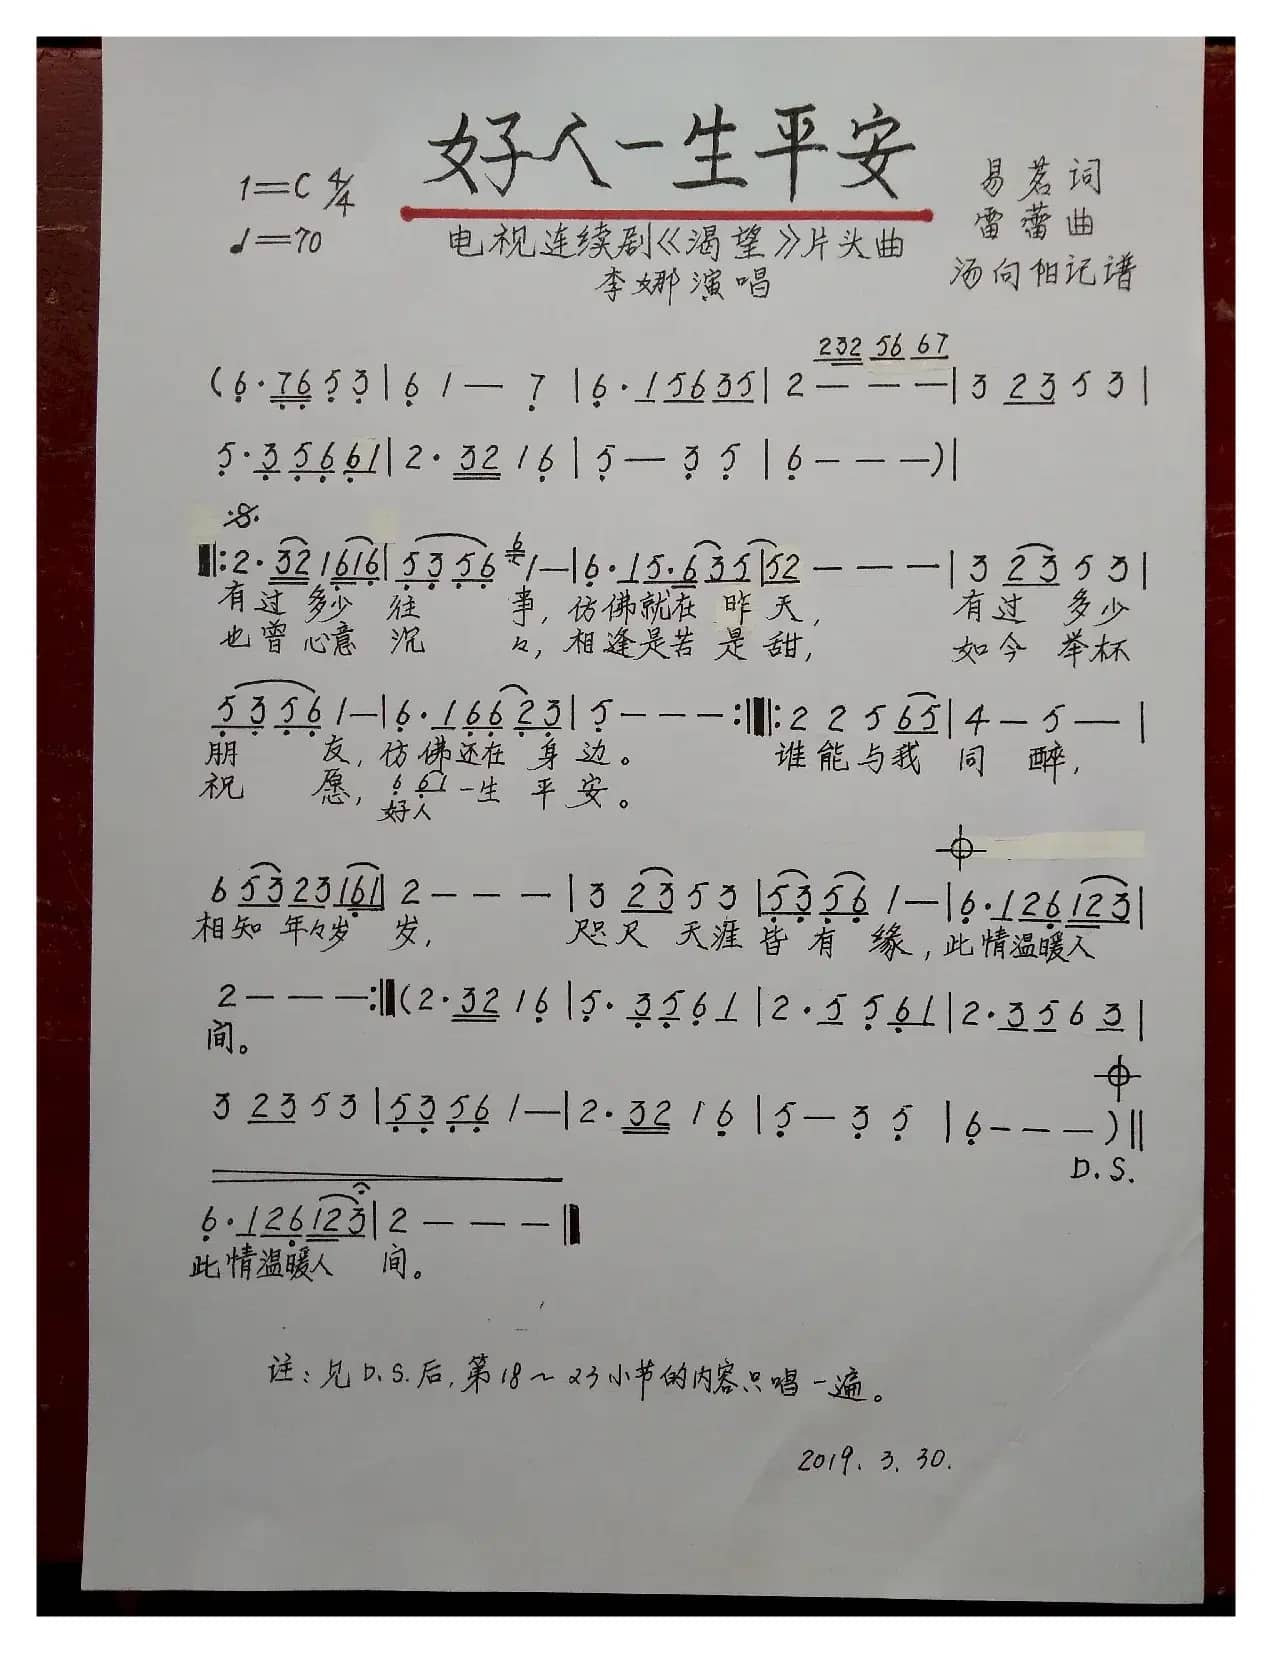 好人一生平安
1=C 4/4
♩=70
电视连续剧《渴望》片头曲
李娜演唱
易茗词
雷蕾曲
汤向阳记谱
232 56 67
(6·76 5 3|6 1— 7|6·1 56 35|2———|3 23 5 3|
5·3 56 61|2·32 1 6|5—3 5|6———)|
𝄋
‖:2·32 16 16|53 56 6 1—|6·1 5·6 35|52———|3 23 5 3|
有过多少往事,仿佛就在昨天,有过多少
也曾心意沉々,相逢是苦是甜,如今举杯
53 56 1—|6·1 66 23|5———:‖:2 2 5 65|4—5—|
朋友,仿佛还在身边。谁能与我同醉,
祝愿,6 61 一生平安。
好人
6 53 23 161|2———|3 23 5 3|53 56 1—|6·1 26 123|
相知年々岁岁,咫尺天涯皆有缘,此情温暖人
2———:‖(2·32 1 6|5·3 56 1|2·5 5 61|2·3 5 6 3|
间。
3 23 5 3|53 56 1—|2·32 1 6|5—3 5|6———)‖
D.S.
6·1 26 123|2———‖
此情温暖人间。
注:见D.S.后,第18~23小节的内容只唱一遍。
2019.3.30.